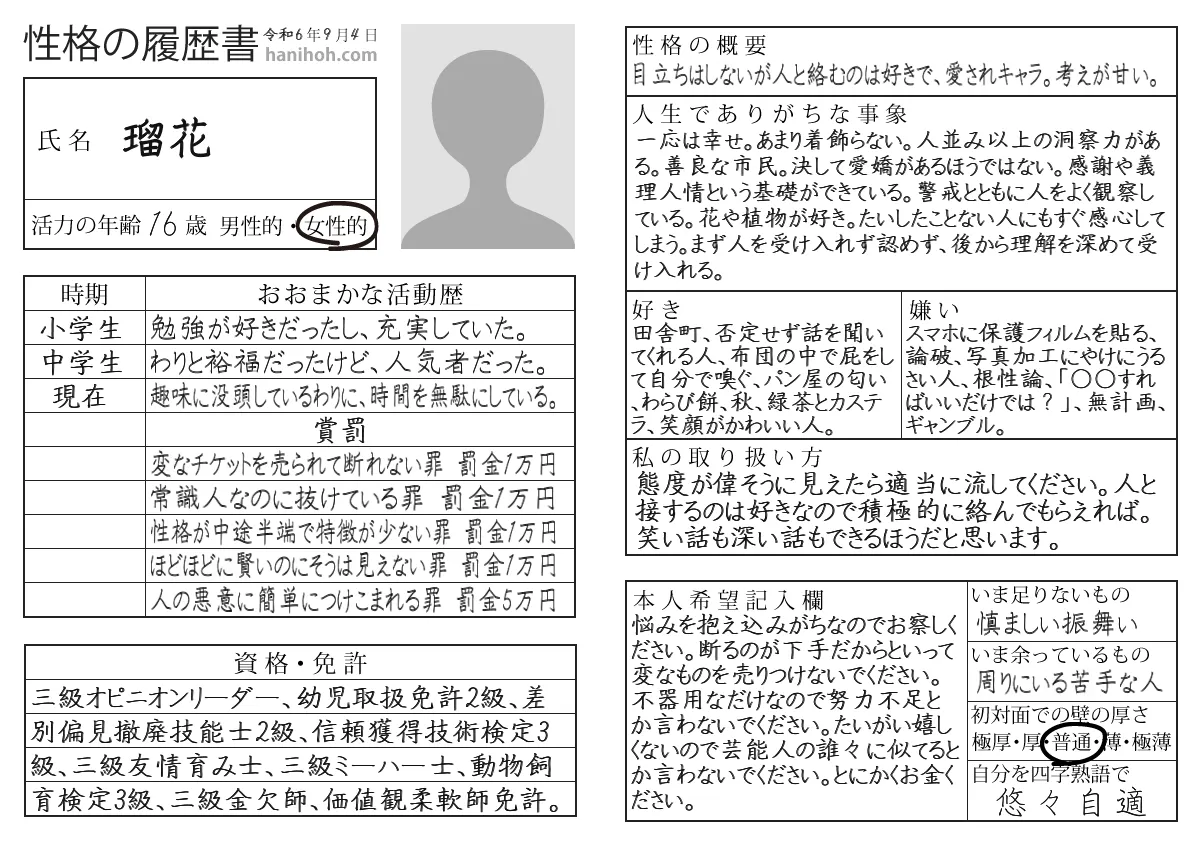 性格の履歴書 令和6年9月4日
hanihoh.com
氏名 瑠花
活力の年齢 16 歳 男性的・女性的
時期 おおまかな活動歴
小学生 勉強が好きだったし、充実していた。
中学生 わりと裕福だったけど、人気者だった。
現在 趣味に没頭しているわりに、時間を無駄にしている。
賞罰
変なチケットを売られて断れない罪 罰金1万円
常識人なのに抜けている罪 罰金1万円
性格が中途半端で特徴が少ない罪 罰金1万円
ほどほどに賢いのにそうは見えない罪 罰金1万円
人の悪意に簡単につけこまれる罪 罰金5万円
資格・免許
三級オピニオンリーダー、幼児取扱免許2級、差
別偏見撤廃技能士2級、信頼獲得技術検定3
級、三級友情育み士、三級ミーハー士、動物飼
育検定3級、三級金欠師、価値観柔軟師免許。
性格の概要
目立ちはしないが人と絡むのは好きで、愛されキャラ。考えが甘い。
人生でありがちな事象
一応は幸せ。あまり着飾らない。人並み以上の洞察力があ
る。善良な市民。決して愛嬌があるほうではない。感謝や義
理人情という基礎ができている。警戒とともに人をよく観察し
ている。花や植物が好き。たいしたことない人にもすぐ感心して
しまう。まず人を受け入れず認めず、後から理解を深めて受
け入れる。
好き
田舎町、否定せず話を聞い
てくれる人、布団の中で屁をし
て自分で嗅ぐ、パン屋の匂い
、わらび餅、秋、緑茶とカステ
ラ、笑顔がかわいい人。
嫌い
スマホに保護フィルムを貼る、
論破、写真加工にやけにうる
さい人、根性論、「○○すれ
ばいいだけでは?」、無計画、
ギャンブル。
私の取り扱い方
態度が偉そうに見えたら適当に流してください。人と
接するのは好きなので積極的に絡んでもらえれば。
笑い話も深い話もできるほうだと思います。
本人希望記入欄
悩みを抱え込みがちなのでお察しく
ださい。断るのが下手だからといって
変なものを売りつけないでください。
不器用なだけなので努力不足と
か言わないでください。たいがい嬉し
くないので芸能人の誰々に似てると
か言わないでください。とにかくお金く
ださい。
いま足りないもの
慎ましい振舞い
いま余っているもの
周りにいる苦手な人
初対面での壁の厚さ
極厚・厚・普通・薄・極薄
自分を四字熟語で
悠々自適